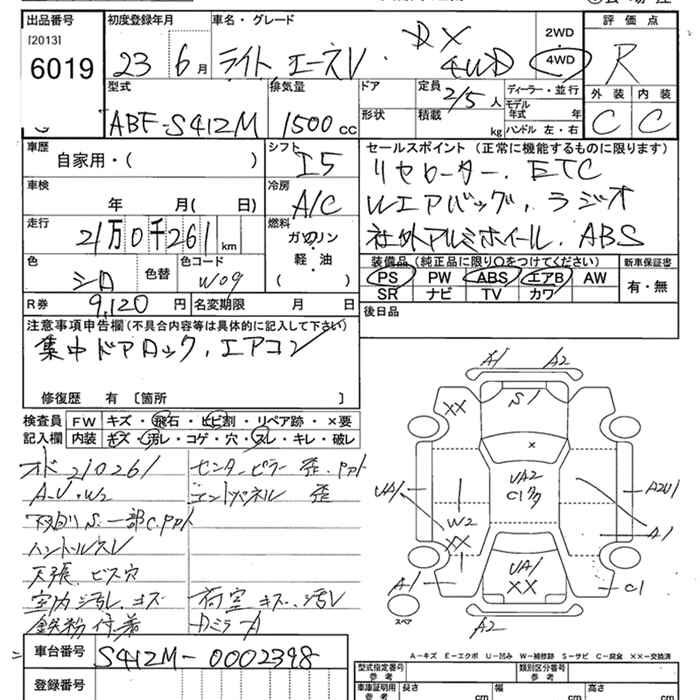 出品番号 初度登録年月 車名・グレード
[2013]
6019
23 6月 ライトエースV・DX 4WD
2WD
4WD
評価点
R
型式 排気量 ドア 定員 2/5人 ディーラー・並行
ABF-S412M 1500cc 形状 積載 kg モデル年式 年
ハンドル 左・右
外装 内装
C C
車歴 シフト I5 セールスポイント (正常に機能するものに限ります)
自家用・( )
リヤヒーター. ETC
車検 年 月( 日) 冷房 A/C
Wエアバッグ, ラジオ
走行 21万0千261km 燃料 ガソリン・軽油・( )
社外アルミホイール. ABS
色 シロ 色替 色コード W09
装備品 (純正品に限り○をつけてください) 新車保証書
PS PW ABS エアB AW 有・無
SR ナビ TV カワ
R券 9,120円 名変期限 月 日
後日品
注意事項申告欄 (不具合内容等は具体的に記入して下さい)
集中ドアロック, エアコン
修復歴 有 〔箇所 〕
検査員 FW キズ・飛石・ヒビ割・リペア跡・×要
記入欄 内装 キズ・汚レ・コゲ・穴・スレ・キレ・破レ
210261 センターピラー 歪.
A-U.W2 エンドパネル 歪
ハンドルスレ
天張. ビス穴
室内汚レ. キズ 荷室キズ.汚レ
鉄粉付着
A1 A2
XX S1
×
UA1 UA2 A2U1
W2 XX A1
A1 UA1 XX C1
スペア A2
A-キズ E-エクボ U-凹み W-補修跡 S-サビ C-腐食 XX-交換済
車台番号 S412M-0002398
型式指定番号 参考 類別区分番号 参考
登録番号
車庫証明用 参考 長さ cm 幅 cm 高さ cm